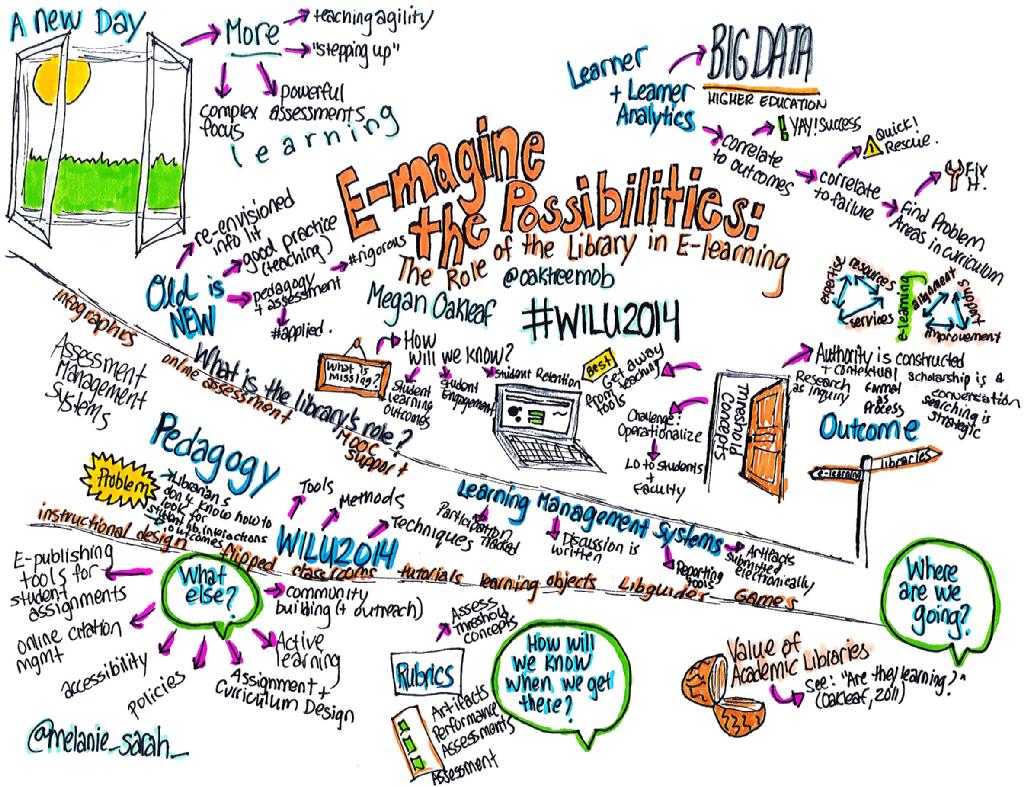 A new DAY
More
teaching agility
"stepping up"
complex
focus
powerful
assessments
learning
Learner
+ Learner
Analytics
BIG DATA
HIGHER EDUCATION
correlate
to outcomes
YAY! Success
correlate
to failure
Quick!
Rescue.
find Problem
Areas in curriculum
FIX
it.
E-magine
the Possibilities:
The Role of the Library in E-learning
@oakleemob
Megan Oakleaf
#WILU2014
Old is
NEW
re-envisioned
info lit
good practice
(teaching)
pedagogy
+ assessment
#rigorous
#applied.
expertise
resources
services
e-learning
alignment
support
improvement
infographics
online assessment
MOOC
Support
Assessment
Management
Systems
What is the library's role?
What is
missing?
How
will we know?
Student
Learning
Outcomes
student
Engagement
Student Retention
Best!
Get away
from teaching
tools
Challenge:
Operationalize
LO to students
+
Faculty
Threshold
Concepts
Authority is constructed
+ contextual
Research
as inquiry
Format
as
Process
scholarship is a
conversation
searching is
strategic
Outcome
e-learning
libraries
Pedagogy
Problem
*Librarians
don't know how to
look for
student lib interactions
to outcomes
WILU2014
Tools
Methods
Techniques
Learning Management Systems
Participation
tracked
Discussion is
written
Reporting
tools
Artifacts
submitted
electronically
instructional design
flipped classrooms
tutorials
learning objects
Libguides
Games
What
else?
E-publishing
tools for
student
assignments
online citation
mgmt
accessibility
policies
Assignment +
Curriculum Design
Active
learning
community
building (+ outreach)
Rubrics
Assess
threshold
concepts
Artifacts
Performance
Assessments
Assessment
How will
we know
when we get
there?
Value of
Academic Libraries
see: "Are they learning?"
(Oakleaf, 2011)
Where
are we
going?
@melanie_sarah_